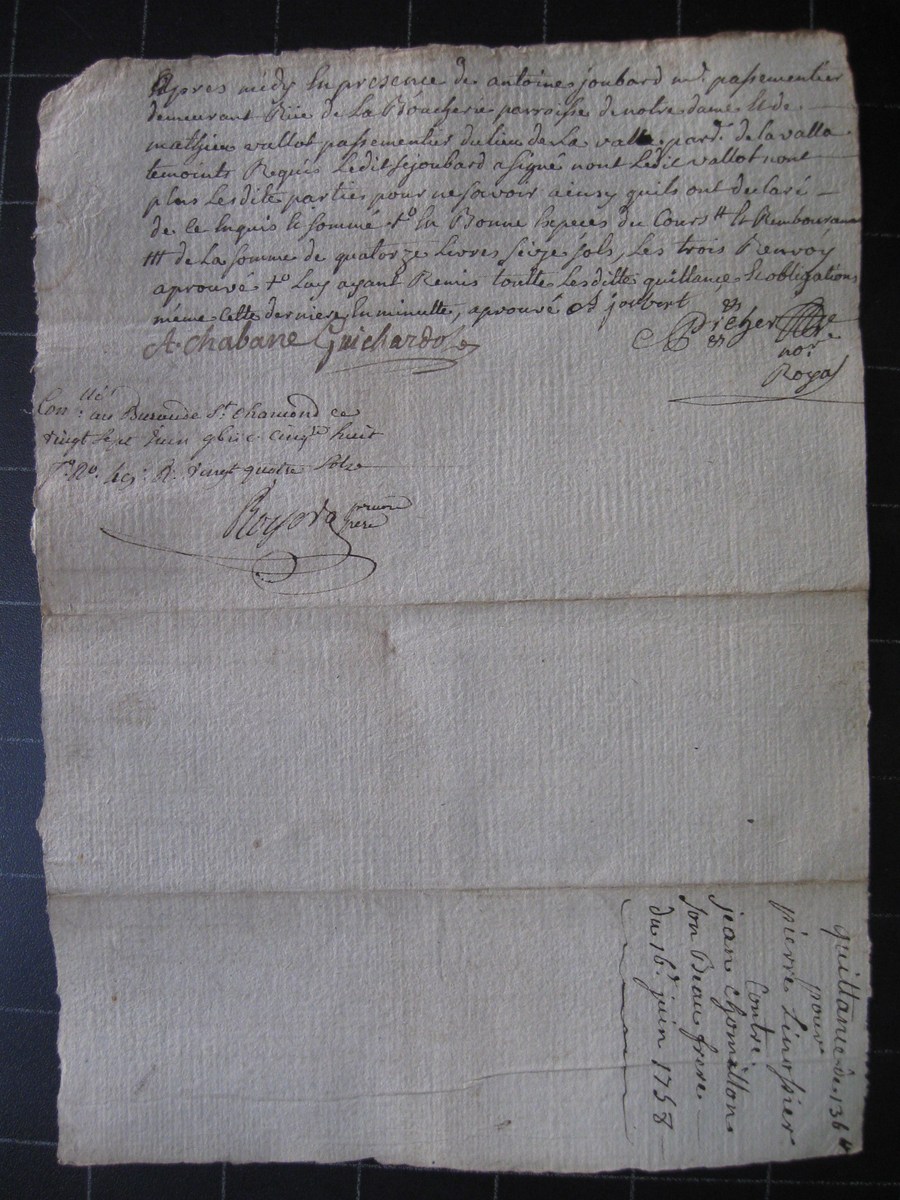 apres midy En presence de antoine joubard md. passementier
demeurant Rüe de La Boucherie parroisse de notre dame Et de
mathieu vallot passementier du lieu de La valla pard. de la valla
temoints Requis Ledit sr joubard a signé nont Ledit vallot nont
plus Lesditte parties pour ne savoir ainsy quils ont declaré
de ce Enquis Et sommé to En Bonne Especes du Cours tt Et Rembourcement
ttt de La somme de quatorze Livres seize sols, Les trois Renvoy
aprouvé to Luy ayant Remis toutte Lesditte quittance Et obligations
même Cette derniere En minutte, aprouvé joubert
A. Chabane Guichard
Picher
nore
Royal
Conllé au Bureau de St. Chamond ce
vingt sept Juin cinqte huit
R. vingt quatre sols
Royer
quittance de 136 tt
pour
pierre Linossier
Contre
jean Chomillon
son Beau frere
du 16e juin 1758